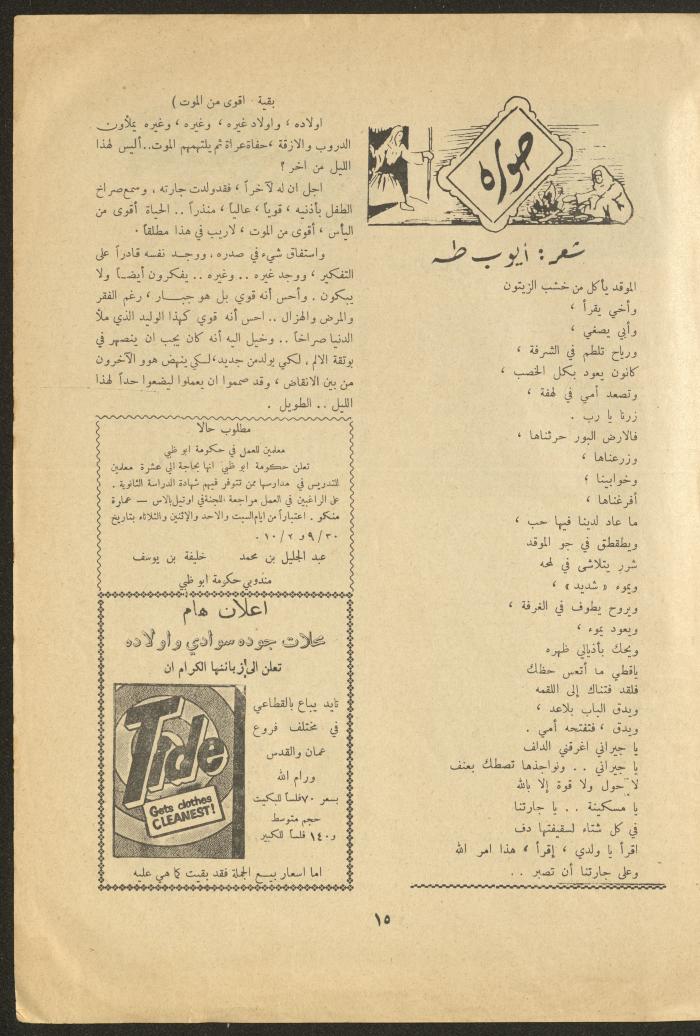 صورة
شعر : أيوب طه
الموقد يأكل من خشب الزيتون
وأخي يقرأ ،
وأبي يصغي ،
ورياح تلطم في الشرفة ،
كانون يعود بكل الخصب ،
وتصعد أمي في لهفة ،
زرنا يا رب .
فالارض البور حرثناها ،
وزرعناها ،
وخوابينا ؛
أفرغناها ،
ما عاد لدينا فيها حب ،
ويطقطق في جو الموقد
شرر يتلاشى في لمحه
ويموء « شديد » ،
ويروح يطوف في الغرفة ،
ويعود يموء ،
ويحك بأذيالي ظهره
ياقطي ما أتعس حظك
فلقد فتناك إلى اللقمه
ويدق الباب بلاعد ،
ويدق ، فتفتحه أمي .
يا جيراني اغرقني الدالف
يا جيراني . . ونواجذها تصطك بعنف
لا حول ولا قوة إلا بالله
يا مسكينة . . يا جارتنا
في كل شتاء لسقيفتها دف
اقرأ يا ولدي ، إقرأ ، هذا امر الله
وعلى جارتنا أن تصبر . .
بقية - اقوى من الموت )
اولاده ، واولاد غيره ، وغيره ، وغيره يملأون
الدروب والازقة ،حفاةعراة ثم يلتهمهم الموت..أليس لهذا
الليل من اخر ؟
اجل ان له لآخراً ، فقدولدت جارته ، وسمع صراخ
الطفل بأذنيه ، قوياً ، عالياً ، منذراً .. الحياة أقوى من
اليأس ، أقوى من الموت ، لاريب في هذا مطلقاً .
واستفاق شيء في صدره ، ووجد نفسه قادراً على
التفكير ، ووجد غيره .. وغيره .. يفكرون أيضاً ولا
يبكون . وأحس أنه قوي بل هو جبار ، رغم الفقر
والمرض والهزال .. احس أنه قوي كهذا الوليد الذي ملأ
الدنيا صراخاً .. وخيل اليه أنه كان يجب ان ينصهر في
بوتقة الالم . لكي يولدمن جديد،لكي ينهض هوو الآخرون
من بين الانقاض ، وقد صمموا ان يعملوا ليضعوا حداً لهذا
الليل .. الطويل .
مطلوب حالا
معلمين للعمل في حكومة ابو ظبي
تعلن حكومة ابو ظبي انها بحاجة الى عشرة معلمين
للتدريس في مدارسها ممن تتوفر فيهم شهادة الدراسة الثانوية .
على الراغبين في العمل مراجعة اللجنة في اوتيل بالاس — عمارة
منكو . اعتباراً من ايام السبت والاحد والإثنين والثلاثاء بتاريخ
٩/٣٠ و ١٠/٢ .
عبد الجليل بن محمد خليفة بن يوسف
مندوبي حكومة ابو ظبي
اعلان هام
محلات جوده سوادي واولاده
تعلن الى زبائنها الكرام ان
تايد يباع بالقطاعي
في مختلف فروع
عمان والقدس
ورام الله
بسعر ٧٠ فلساً للبكيت
حجم متوسط
و١٤٠ فلساً للكبير
Tide
Gets clothes
CLEANEST!
اما اسعار بيع الجملة فقد بقيت كما هي عليه
١٥